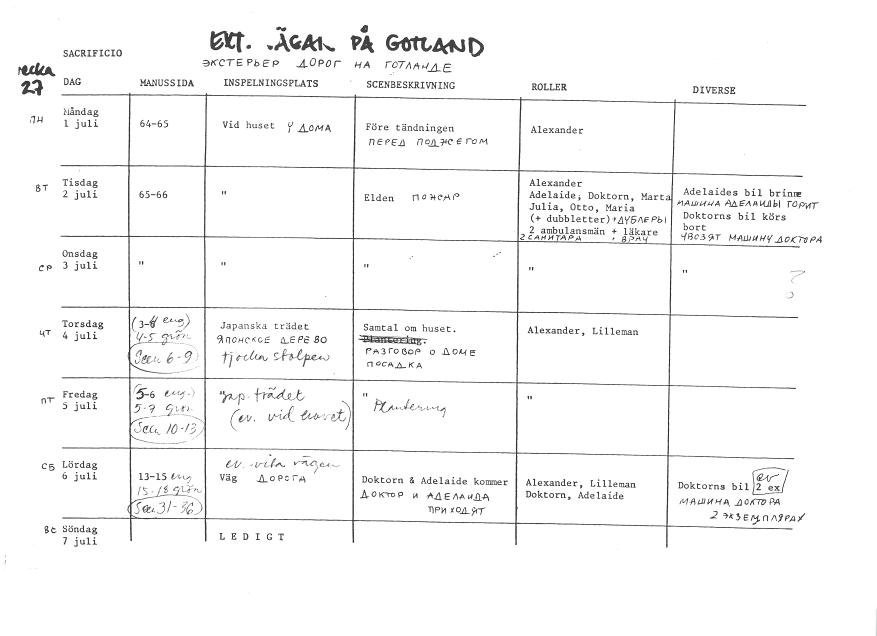 SACRIFICIO
EXT. ÄGAR PÅ GOTLAND
ЭКСТЕРЬЕР ДОРОГ НА ГОТЛАНДЕ
vecka
27
DAG MANUSSIDA INSPELNINGSPLATS SCENBESKRIVNING ROLLER DIVERSE
ПН Måndag
1 juli 64-65 Vid huset У ДОМА Före tändningen Alexander
ПЕРЕД ПОДЖЕГОМ
ВТ Tisdag
2 juli 65-66 " Elden ПОЖАР
Alexander
Adelaide, Doktorn, Marta
Julia, Otto, Maria
(+ dubbletter) + ДУБЛЕРЫ
2 ambulansmän + läkare
2 САНИТАРА + ВРАЧ
Adelaides bil brinne
МАШИНА АДЕЛАИДЫ ГОРИТ
Doktorns bil körs
bort
УВОЗЯТ МАШИНУ ДОКТОРА
СР Onsdag
3 juli " " " " " ?
ЧТ Torsdag
4 juli
(3-4 eng)
4-5 grön
Scen 6-9
Japanska trädet
ЯПОНСКОЕ ДЕРЕВО
tjocka stolpen
Samtal om huset.
Plantering.
РАЗГОВОР О ДОМЕ
ПОСАДКА
Alexander, Lilleman
ПТ Fredag
5 juli
(5-6 eng.)
5-7 grön
Scen 10-13
"Jap. trädet
(ev. vid havet)
"
Plantering
"
СБ Lördag
6 juli
13-15 eng
15-18 grön
Scen 31-36
ev. vita vägen
Väg ДОРОГА
Doktorn & Adelaide kommer
ДОКТОР И АДЕЛАИДА
ПРИХОДЯТ
Alexander, Lilleman
Doktorn, Adelaide
ev
Doktorns bil 2 ex
МАШИНА ДОКТОРА
2 ЭКЗЕМПЛЯРАХ
ВС Söndag
7 juli LEDIGT